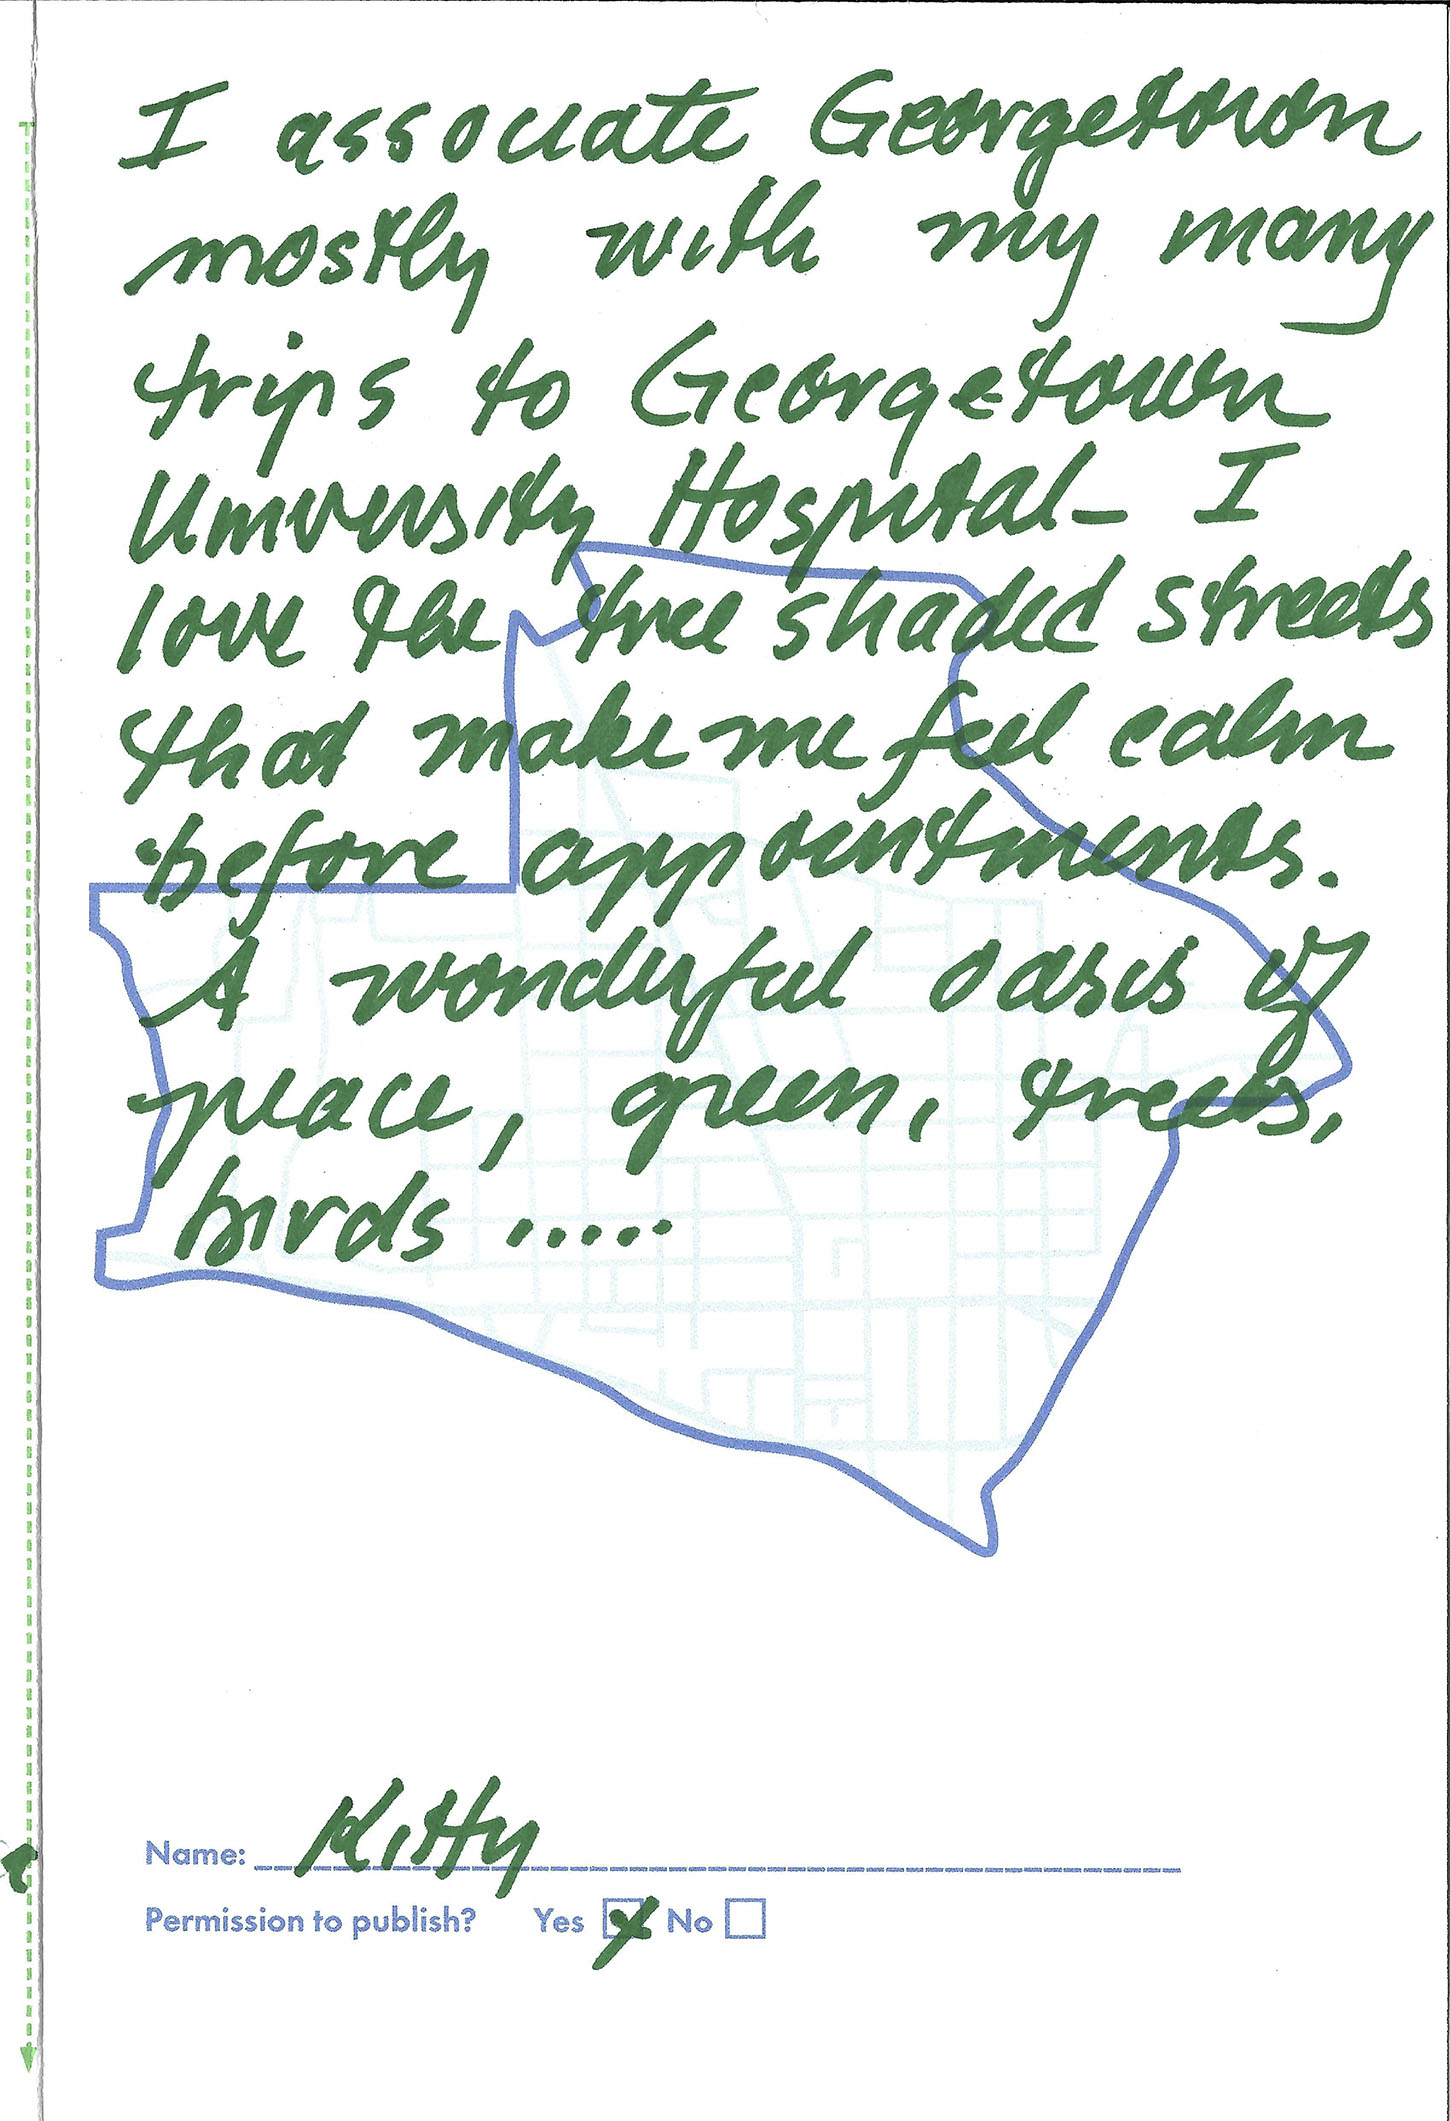 I associate Georgetown
mostly with my many
trips to Georgetown
University Hospital– I
love the tree shaded streets
that make me feel calm
before appointments.
A wonderful oasis of
peace, green, trees,
birds .....
Name: Kitty
Permission to publish? Yes No